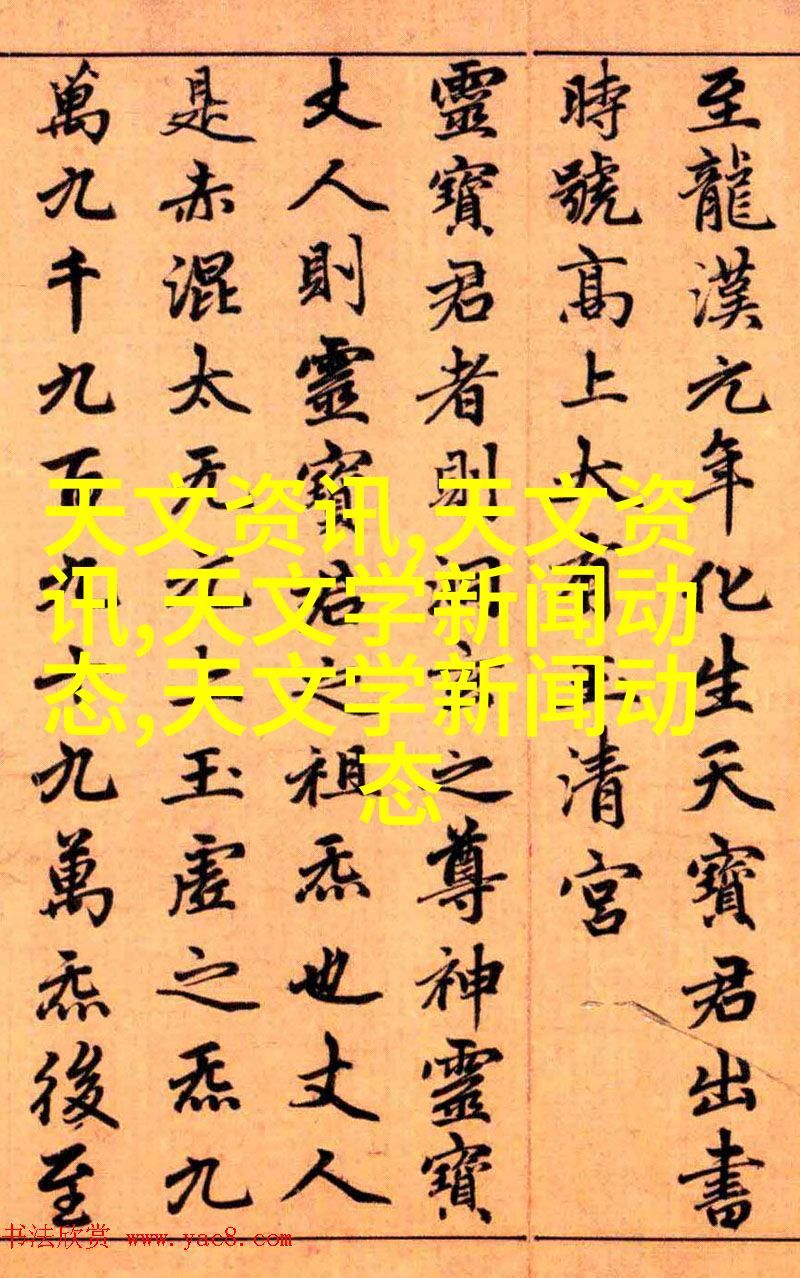 至龍漢元年化生天寶君出書
時號高上大有玉清宮
靈寶君者則洞玄之尊神靈寶
丈人則靈寶君之祖炁也丈人
是赤混太无元上玉虛之炁九
萬九千九百九十九萬炁後至
天文资讯,天文资
讯,天文学新闻动
态,天文学新闻动
态
书法欣赏 www.yac8.com